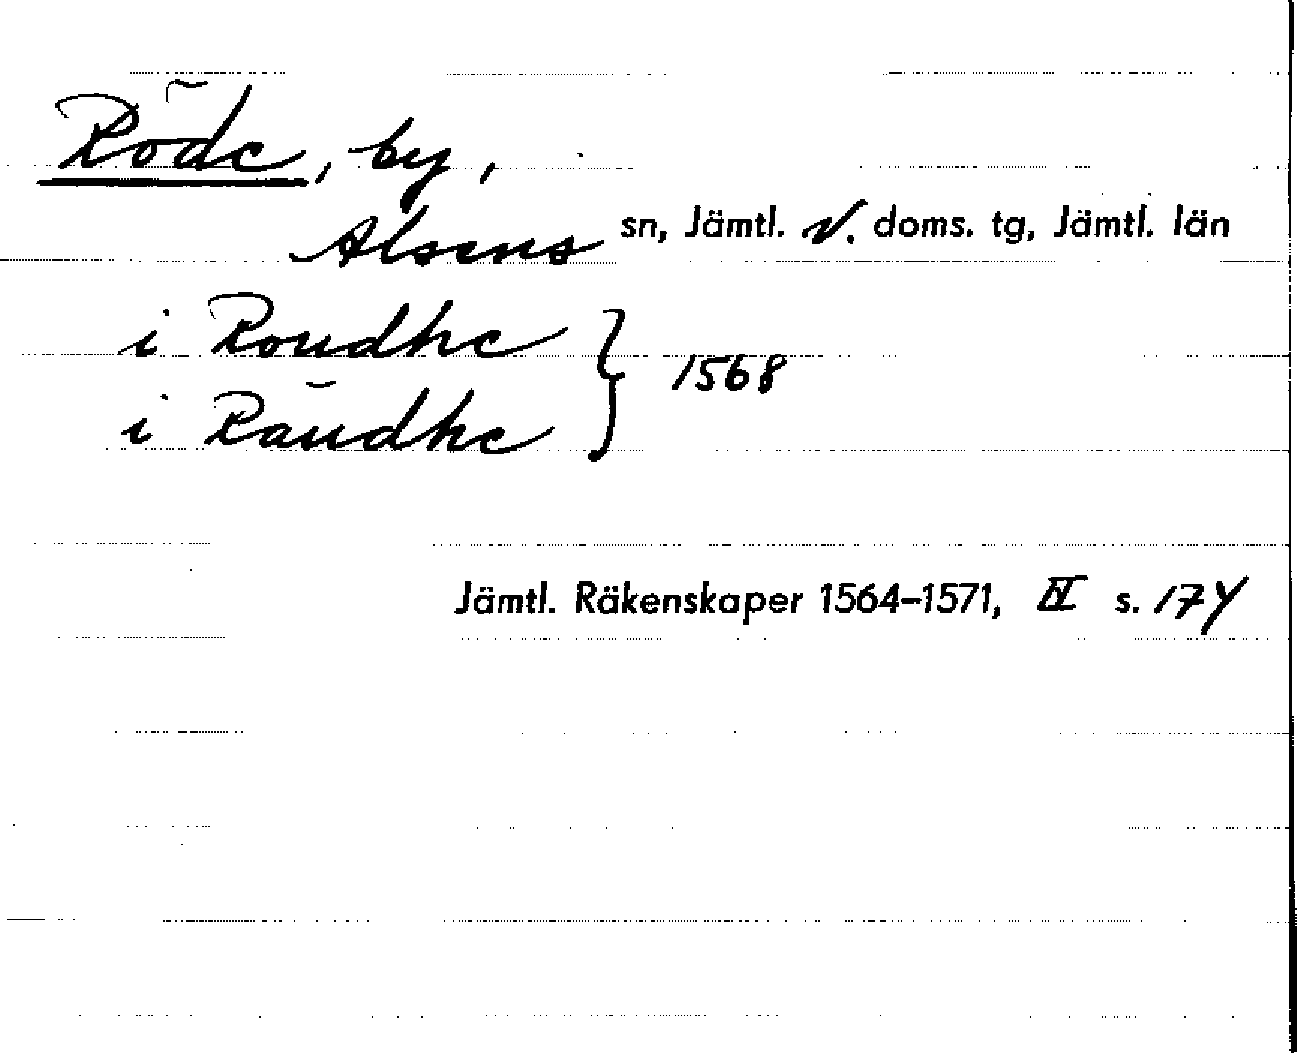 Röde, by,
Alsens sn, Jämtl. v. doms. tg, Jämtl. län
i Roudhe
i Raŭdhe } 1568
Jämtl. Räkenskaper 1564–1571, IV s. 174